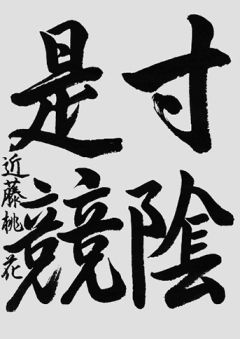 寸陰
是競
近藤桃花